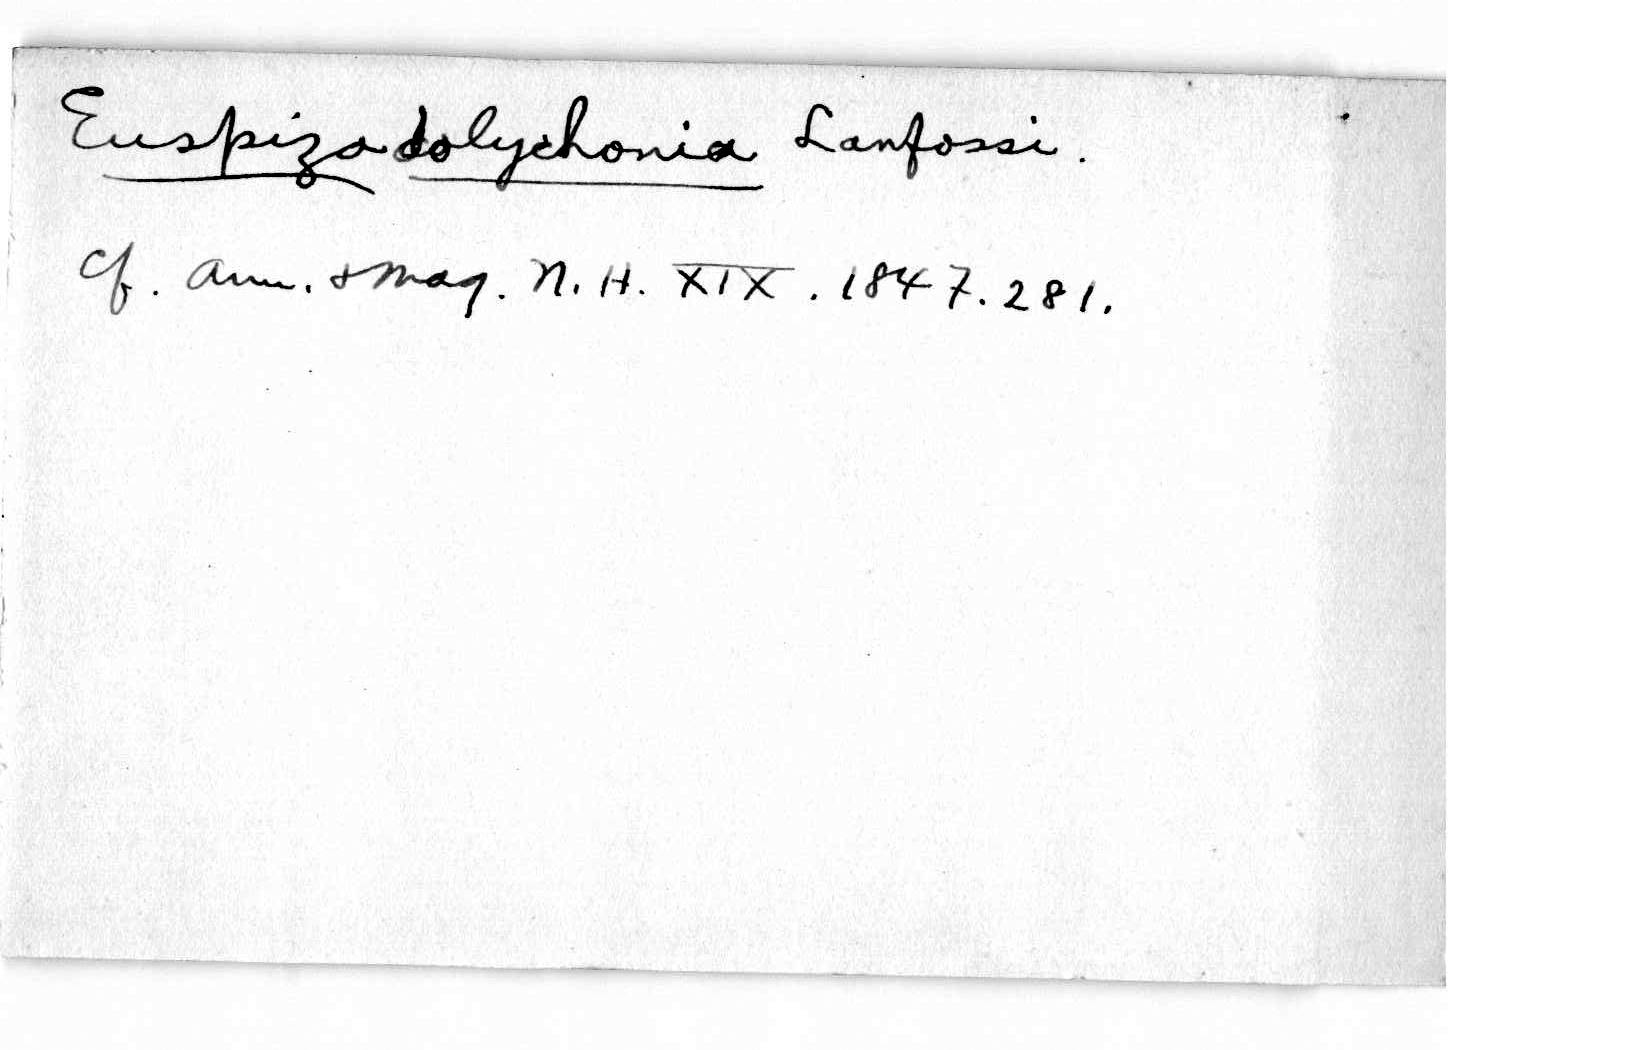 Euspiza dolychonia Lanfossi.
Cf. Ann. & Mag. N. H. XIX. 1847. 281.